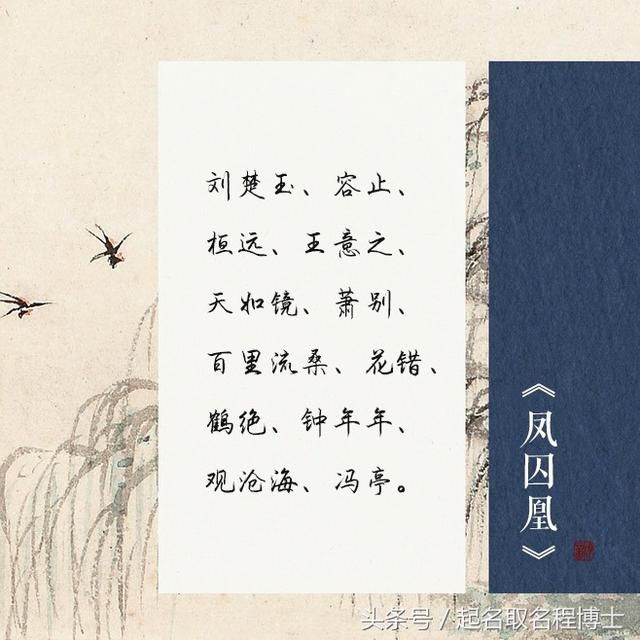 刘楚玉、容止、
桓远、王意之、
天如镜、萧别、
百里流桑、花错、
鹤绝、钟年年、
观沧海、冯亭。
《凤囚凰》
头条号/起名取名程博士